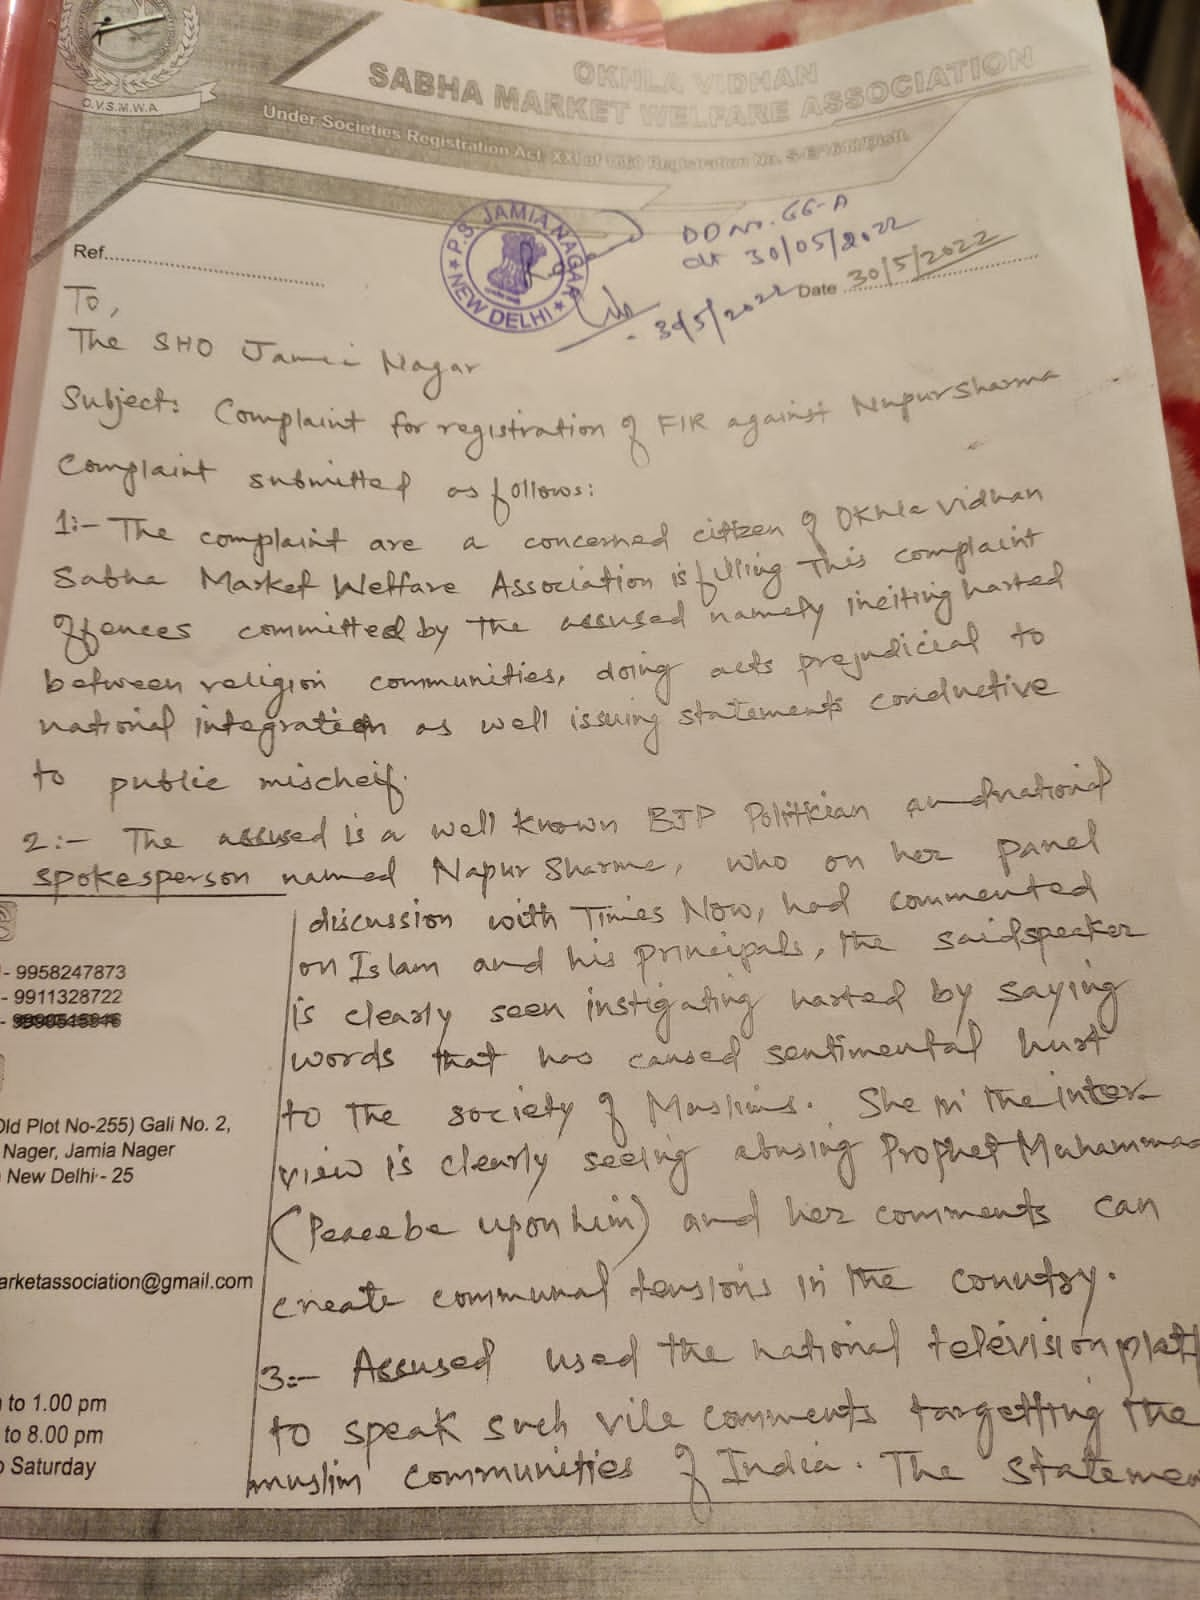 O.V.S.M.W.A
OKHLA VIDHAN
SABHA MARKET WELFARE ASSOCIATION
Under Societies Registration Act. XXI of 1860 Registration No.
P.S. JAMIA NAGAR
NEW DELHI
DD No. 66-A
dt 30/05/2022
30/5/2022
Ref.
Date 30/5/2022
To,
The SHO Jamia Nagar
Subject: Complaint for registration of FIR against Nupur Sharma
Complaint submitted as follows:
1:- The complaint are a concerned citizen of Okhla Vidhan
Sabha Market Welfare Association is filling This complaint
offences committed by The assused namely inciting harted
between religion communities, doing acts prejudicial to
national integration as well issuing statements conductive
to public mischeif.
2:- The assused is a well known BJP Politician and national
spokesperson named Napur Sharma, who on her panel
discussion with Times Now, had commented
on Islam and his principals, the said speaker
is clearly seen instigating harted by saying
words that has caused sentimental hurt
to the society of Muslims. She in the inter-
view is clearly seeing abusing Prophet Muhammad
(Peace be upon him) and her comments can
create communal tensions in the country.
3:- Assused used the national television platf
to speak such vile comments targetting the
muslim communities of India. The statemen
- 9958247873
- 9911328722
Old Plot No-255) Gali No. 2,
Nager, Jamia Nager
New Delhi - 25
arketassociation@gmail.com
to 1.00 pm
to 8.00 pm
o Saturday